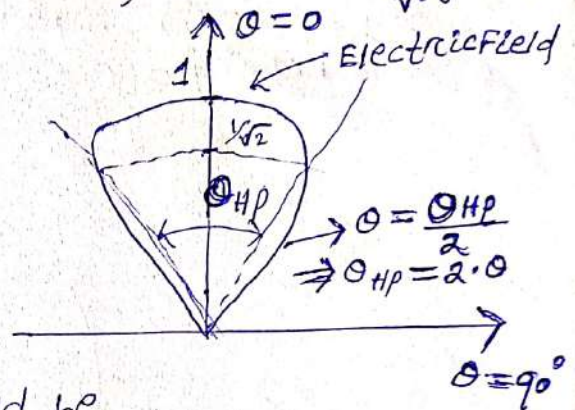 θ = 0
Electric Field
1
1/√2
θHP
θ = θHP/2
⇒ θHP = 2·θ
θ = 90°
d be